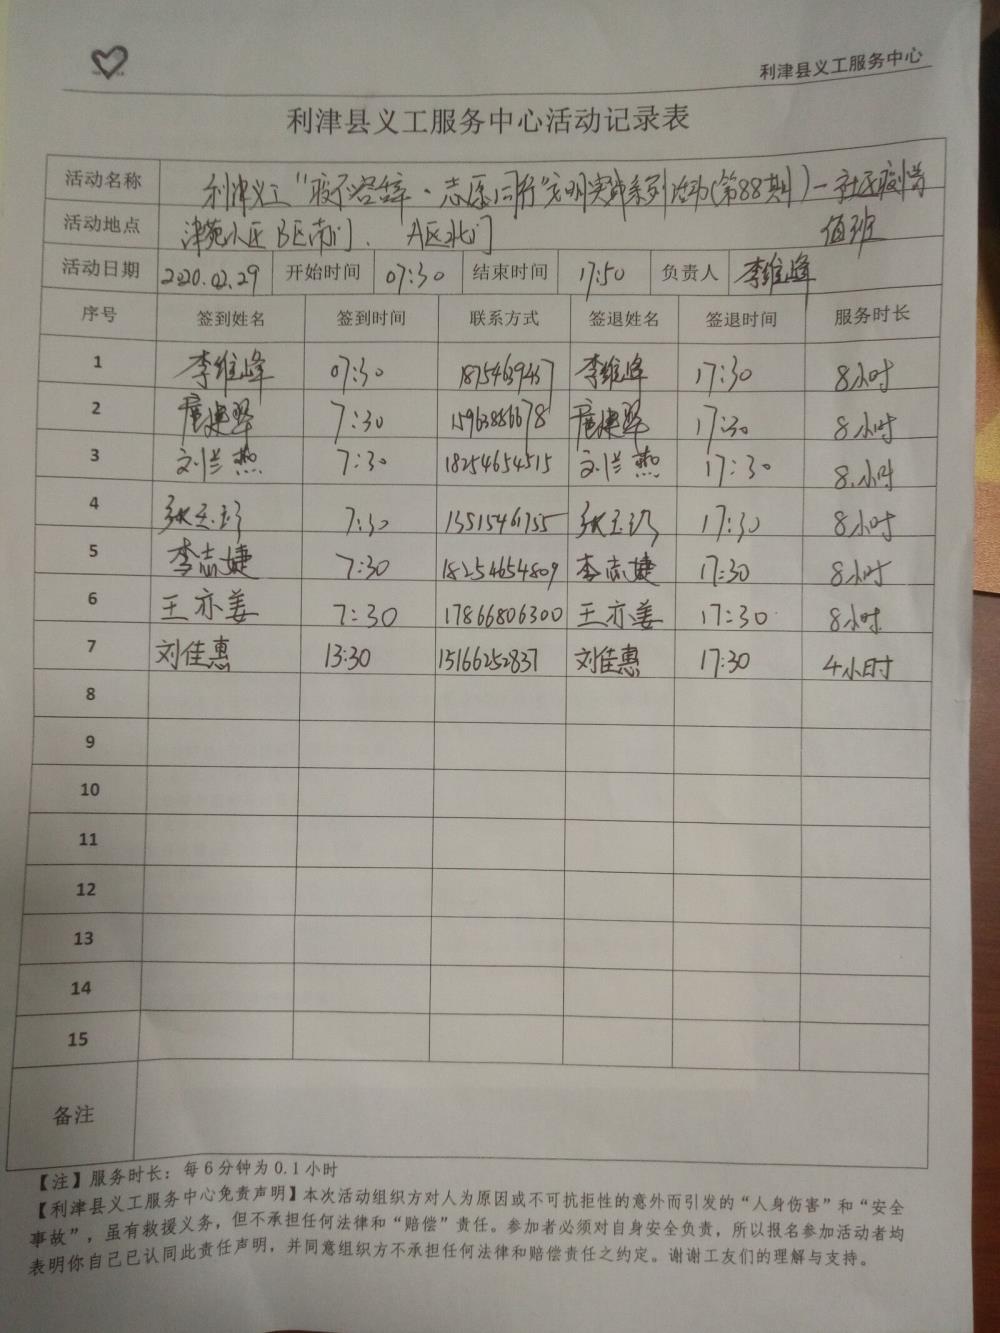 利津县义工服务中心
利津县义工服务中心活动记录表
活动名称 利津义工“疫不容辞·志愿同行”文明实践系列活动(第88期)—社区疫情
值班
活动地点 津苑小区B区南门、A区北门
活动日期 2020.02.29 开始时间 07:30 结束时间 17:50 负责人 李维峰
序号 签到姓名 签到时间 联系方式 签退姓名 签退时间 服务时长
1 李维峰 07:30 李维峰 17:30 8小时
2 7:30 15963886678 17:30 8小时
3 刘兰燕 7:30 18254654515 刘兰燕 17:30 8小时
4 张玉珍 7:30 13515461755 张玉珍 17:30 8小时
5 李志婕 7:30 18254654809 李志婕 17:30 8小时
6 王亦姜 7:30 17866806300 王亦姜 17:30 8小时
7 刘佳惠 13:30 15166252837 刘佳惠 17:30 4小时
8
9
10
11
12
13
14
15
备注
【注】服务时长：每6分钟为0.1小时
【利津县义工服务中心免责声明】本次活动组织方对人为原因或不可抗拒性的意外而引发的“人身伤害”和“安全
事故”，虽有救援义务，但不承担任何法律和“赔偿”责任。参加者必须对自身安全负责，所以报名参加活动者均
表明你自己已认同此责任声明，并同意组织方不承担任何法律和赔偿责任之约定。谢谢工友们的理解与支持。